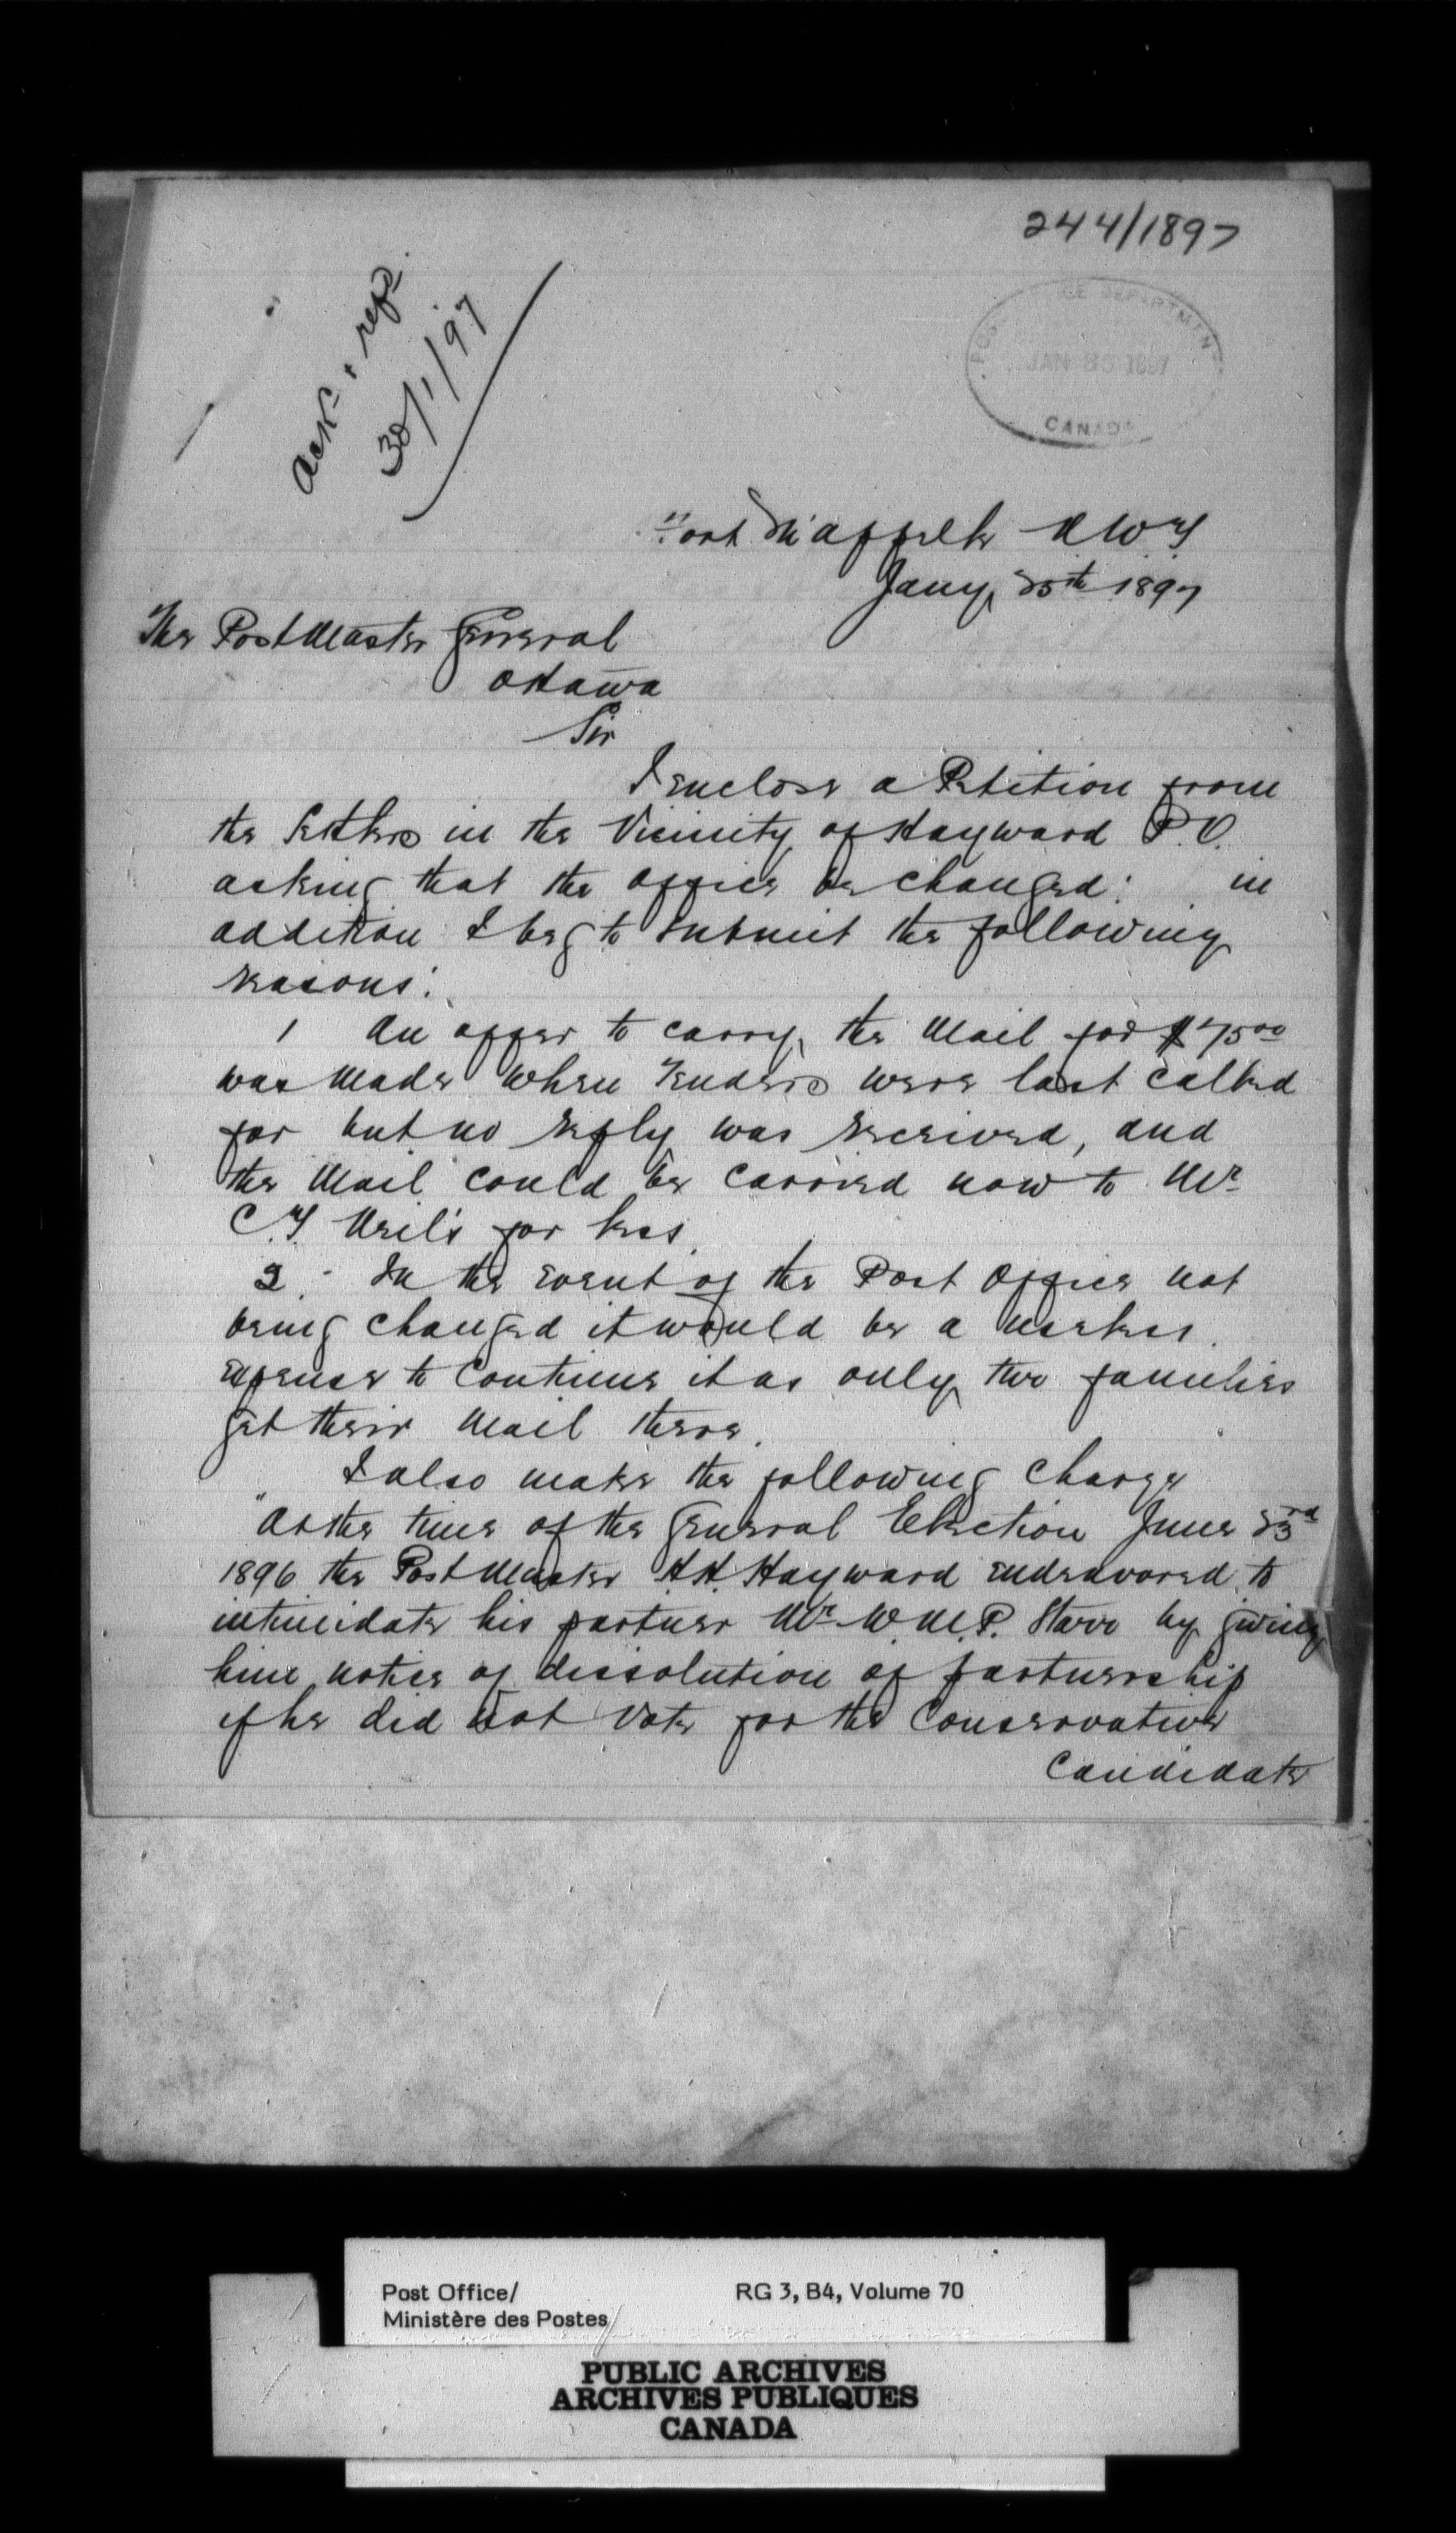 244/1897
POS GE DEPARTMEN
JAN 1897
CANADA
Ack^d + refd
30/1/97
Fort Qu'appelle N W T
Jany 25th 1897
The Post Master General
Ottawa
Sir
I enclose a Petition from
the Settlers in the Vicinity of Hayward P.O.
asking that the office be changed: in
addition I beg to submit the following
reasons:
1 An offer to carry the Mail for $75 00
was made when Tenders were last called
for but no reply was received, and
the Mail could be carried now to Mr
C.T. for less.
2. In the event of the Post Office not
being changed it would be a useless
expense to Continue it as only two families
get their Mail there.
I also make the following Charge
"At the time of the General Election June 23rd
1896 the Post Master H.H. Hayward endeavored to
intimidate his partner Mr W.M.P. Starr by giving
him notice of dissolution of partnership
if he did not Vote for the Conservative
Candidate
Post Office/
Ministère des Postes
RG 3, B4, Volume 70
PUBLIC ARCHIVES
ARCHIVES PUBLIQUES
CANADA